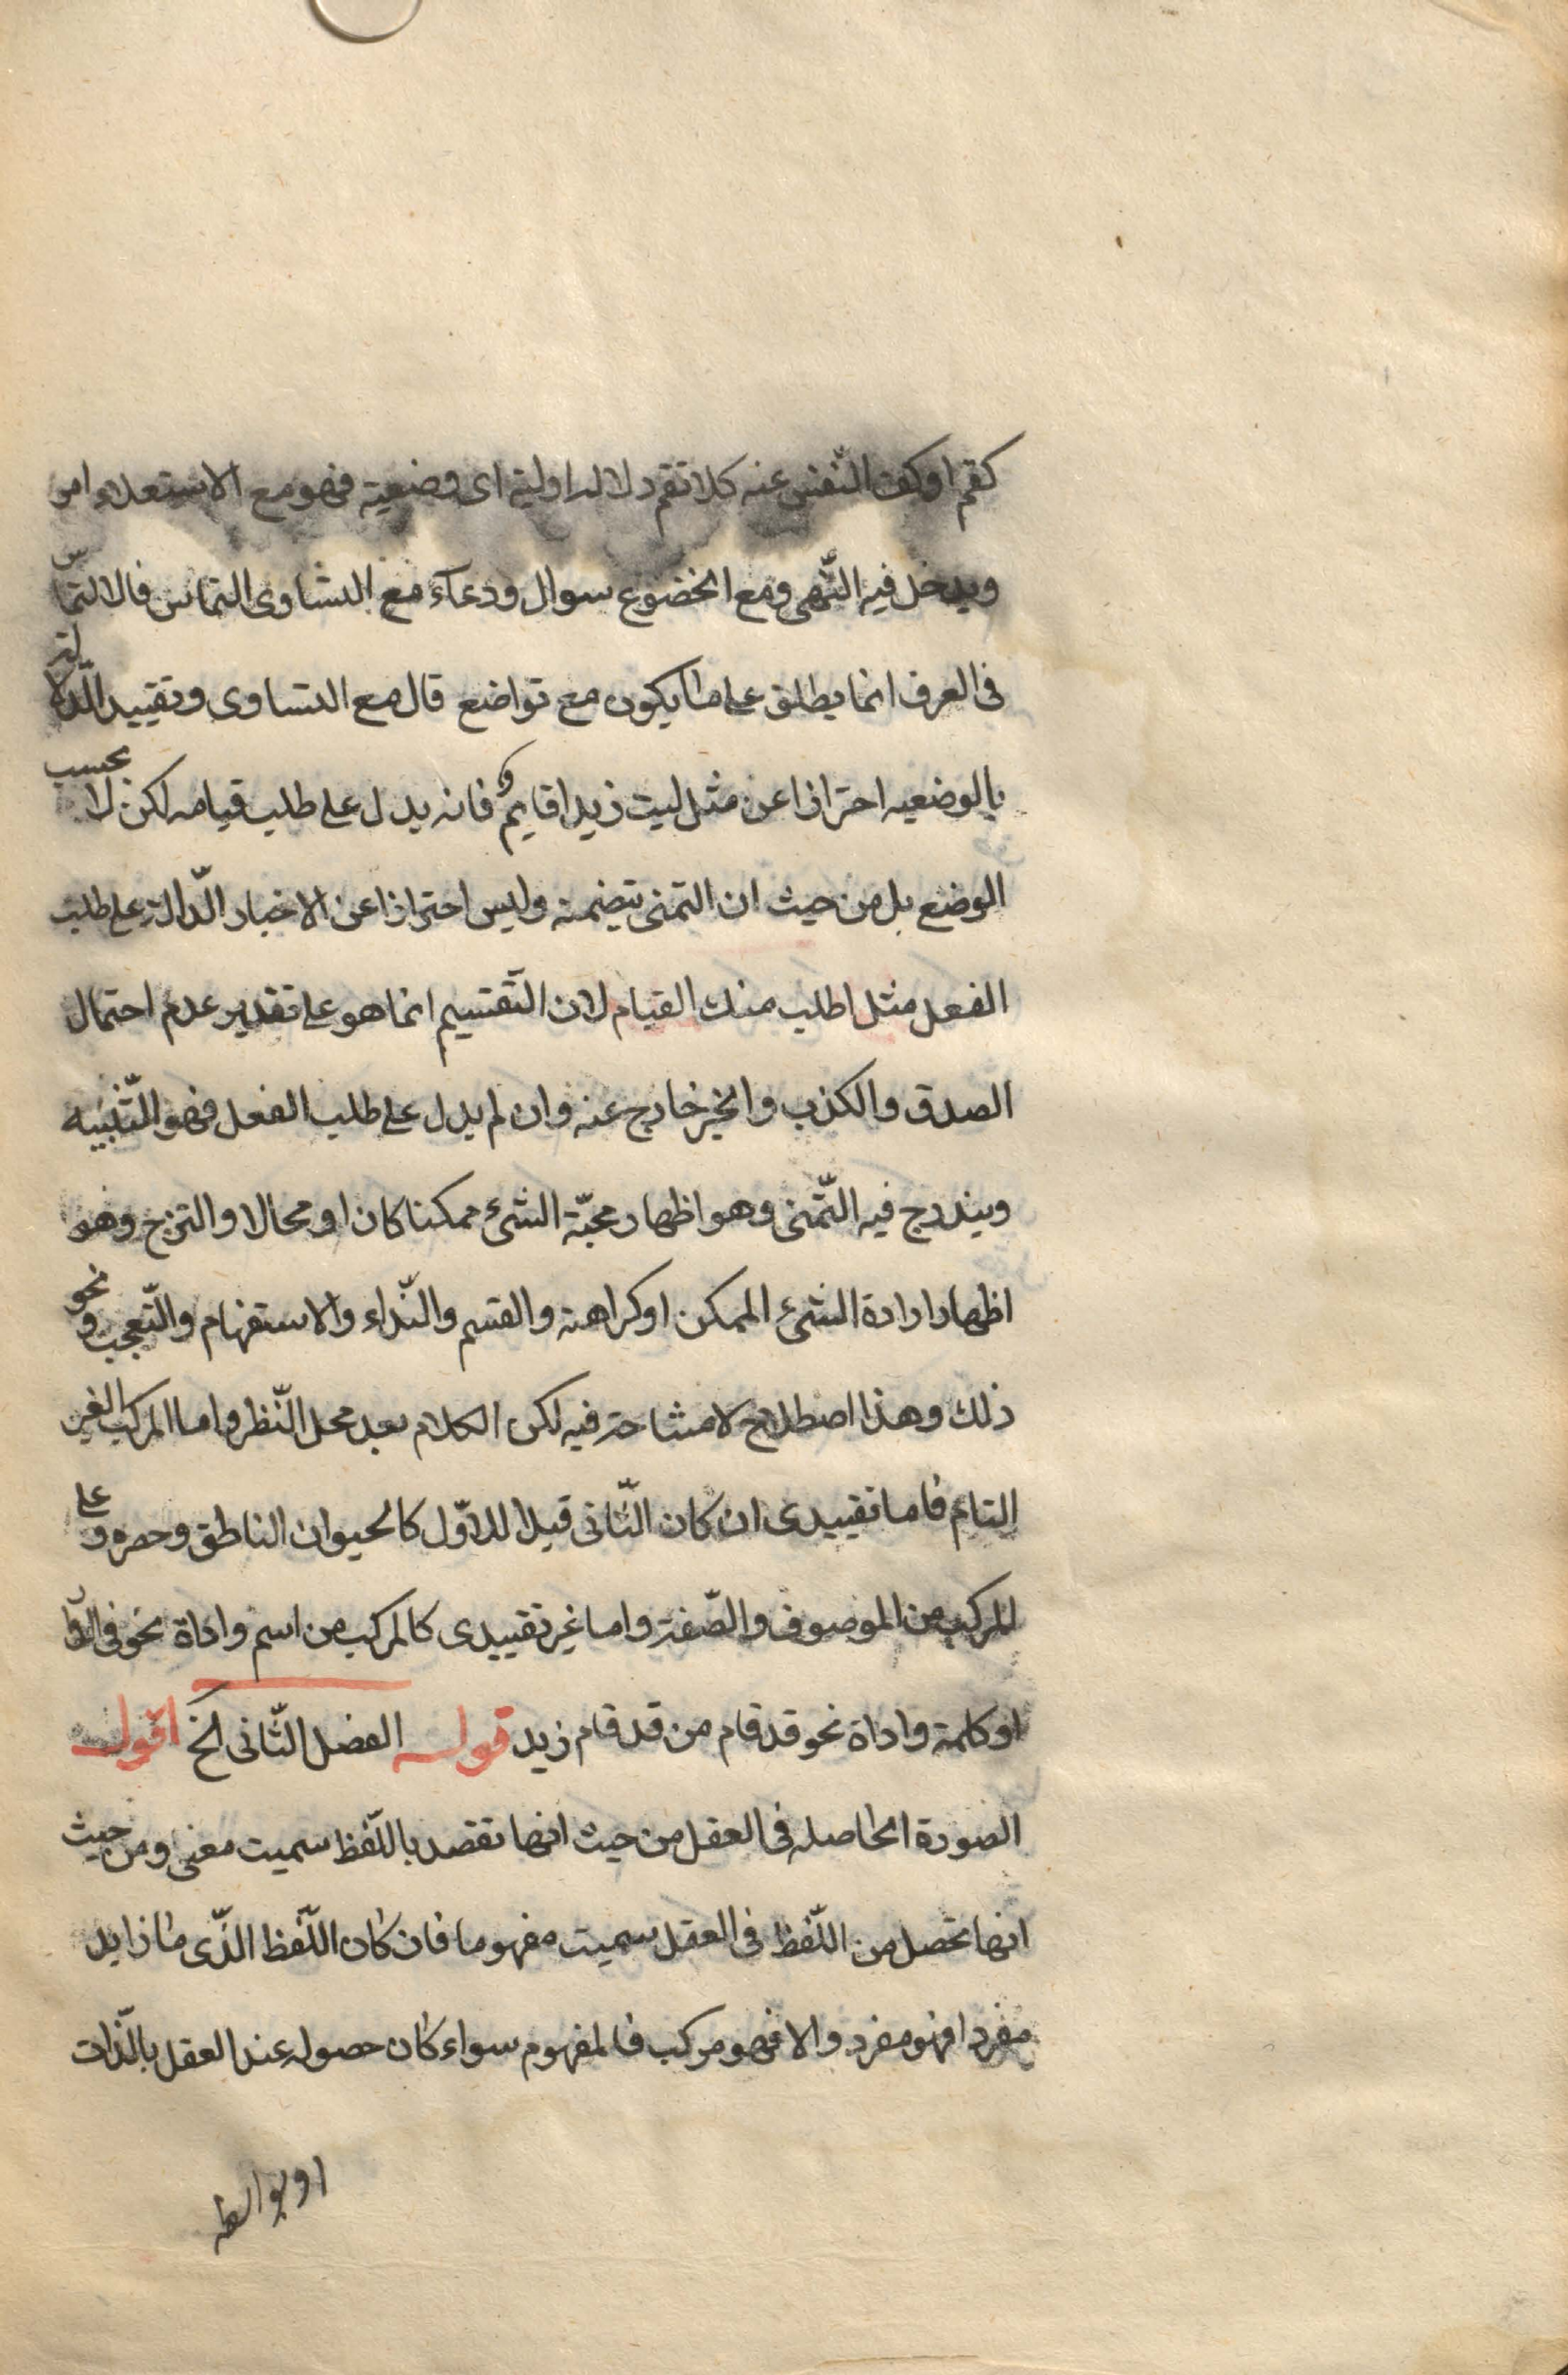 كقم او كف النّفس عنه كلا تقم دلالة اولية اى وضعية فهو مع الاستعلاء امر
ويدخل فيه النّهى ومع الخضوع سوال ودعاء مع التساوى التماس فالالتماس
فى العرف انما يطلق على ما يكون مع تواضع قال مع التساوى وتقييد الّدلالة
بالوضعيه احترازا عن مثل ليت زيدا قايم فانه يدل على طلب قيامه لكن لا بحسب
الوضع بل من حيث ان التمنى يتضمنه وليس احترازا عن الاخبار الّدالة على طلب
الفعل مثل اطلب منك القيام لان التّقسيم انما هو على تقدير عدم احتمال
الصدق والكذب والخبر خارج عنه وان لم يدل على طلب الفعل فهو التّنبيه
ويندرج فيه التّمنى وهو اظهار محبّة الشئ ممكنا كان او محالا والترجى وهو
اظهار ارادة الشئ الممكن او كراهته والقسم والنّداء والاستفهام والتّعجب ونحو
ذلك وهذا اصطلاح لا مشاحة فيه لكن الكلام بعد محل النّظر واما المركب الغير
التام فاما تقييدى ان كان الثّانى قيدا للاوّل كالحيوان الناطق وحصره وعلى
المركب من الموصوف والصّفة واما غير تقييدى كالمركب من اسم واداة نحو فى الدّار
او كلمة واداة نحو قد قام من قد قام زيد قوله الفصل الثّانى الخ اقول
الصورة الحاصله فى العقل من حيث انها تقصد باللّفظ سميت معنى ومن حيث
انها تحصل من اللّفظ فى العقل سميت مفهوما فان كان اللّفظ الذّى مازايد
مفردا فهو مفرد والا فهو مركب فالمفهوم سواء كان حصوله عند العقل بالّذات
او بواسطه